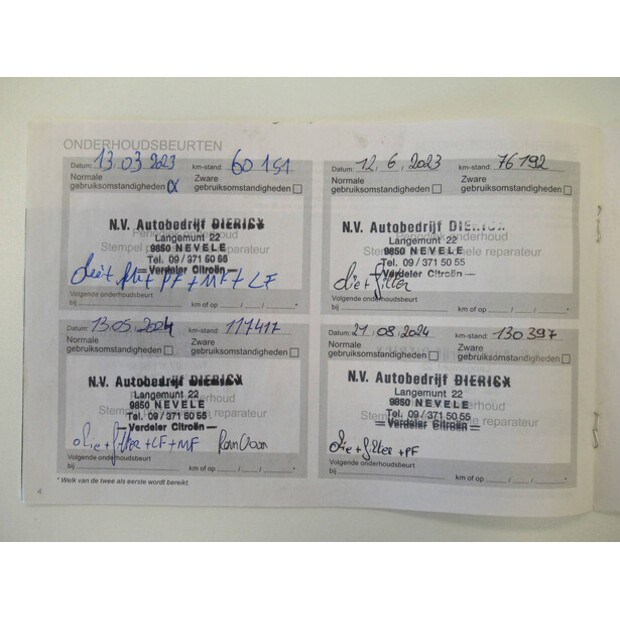 ONDERHOUDSBEURTEN
Datum: 13 / 03 2023 km-stand: 60151
Normale gebruiksomstandigheden Zware gebruiksomstandigheden
N.V. Autobedrijf DIERICX
Langemunt 22
9850 NEVELE
Tel. 09/371 50 55
Verdeler Citroën
olie + filter + PF + MF + LF
Volgende onderhoudsbeurt
bij km of op / / *
Datum: 12, 6, 2023 km-stand: 76192
Normale gebruiksomstandigheden Zware gebruiksomstandigheden
N.V. Autobedrijf DIERICX
Langemunt 22
9850 NEVELE
Tel. 09/371 50 55
Verdeler Citroën
olie + filter
Volgende onderhoudsbeurt
bij km of op / / *
Datum: 13.05.2024 km-stand: 117417
Normale gebruiksomstandigheden Zware gebruiksomstandigheden
N.V. Autobedrijf DIERICX
Langemunt 22
9850 NEVELE
Tel. 09/371 50 55
Verdeler Citroën
olie + filter + LF + MF
Volgende onderhoudsbeurt
bij km of op / / *
Datum: 21.08.2024 km-stand: 130397
Normale gebruiksomstandigheden Zware gebruiksomstandigheden
N.V. Autobedrijf DIERICX
Langemunt 22
9850 NEVELE
Tel. 09/371 50 55
Verdeler Citroën
olie + filter + PF
Volgende onderhoudsbeurt
bij km of op / / *
4
* Welk van de twee als eerste wordt bereikt.